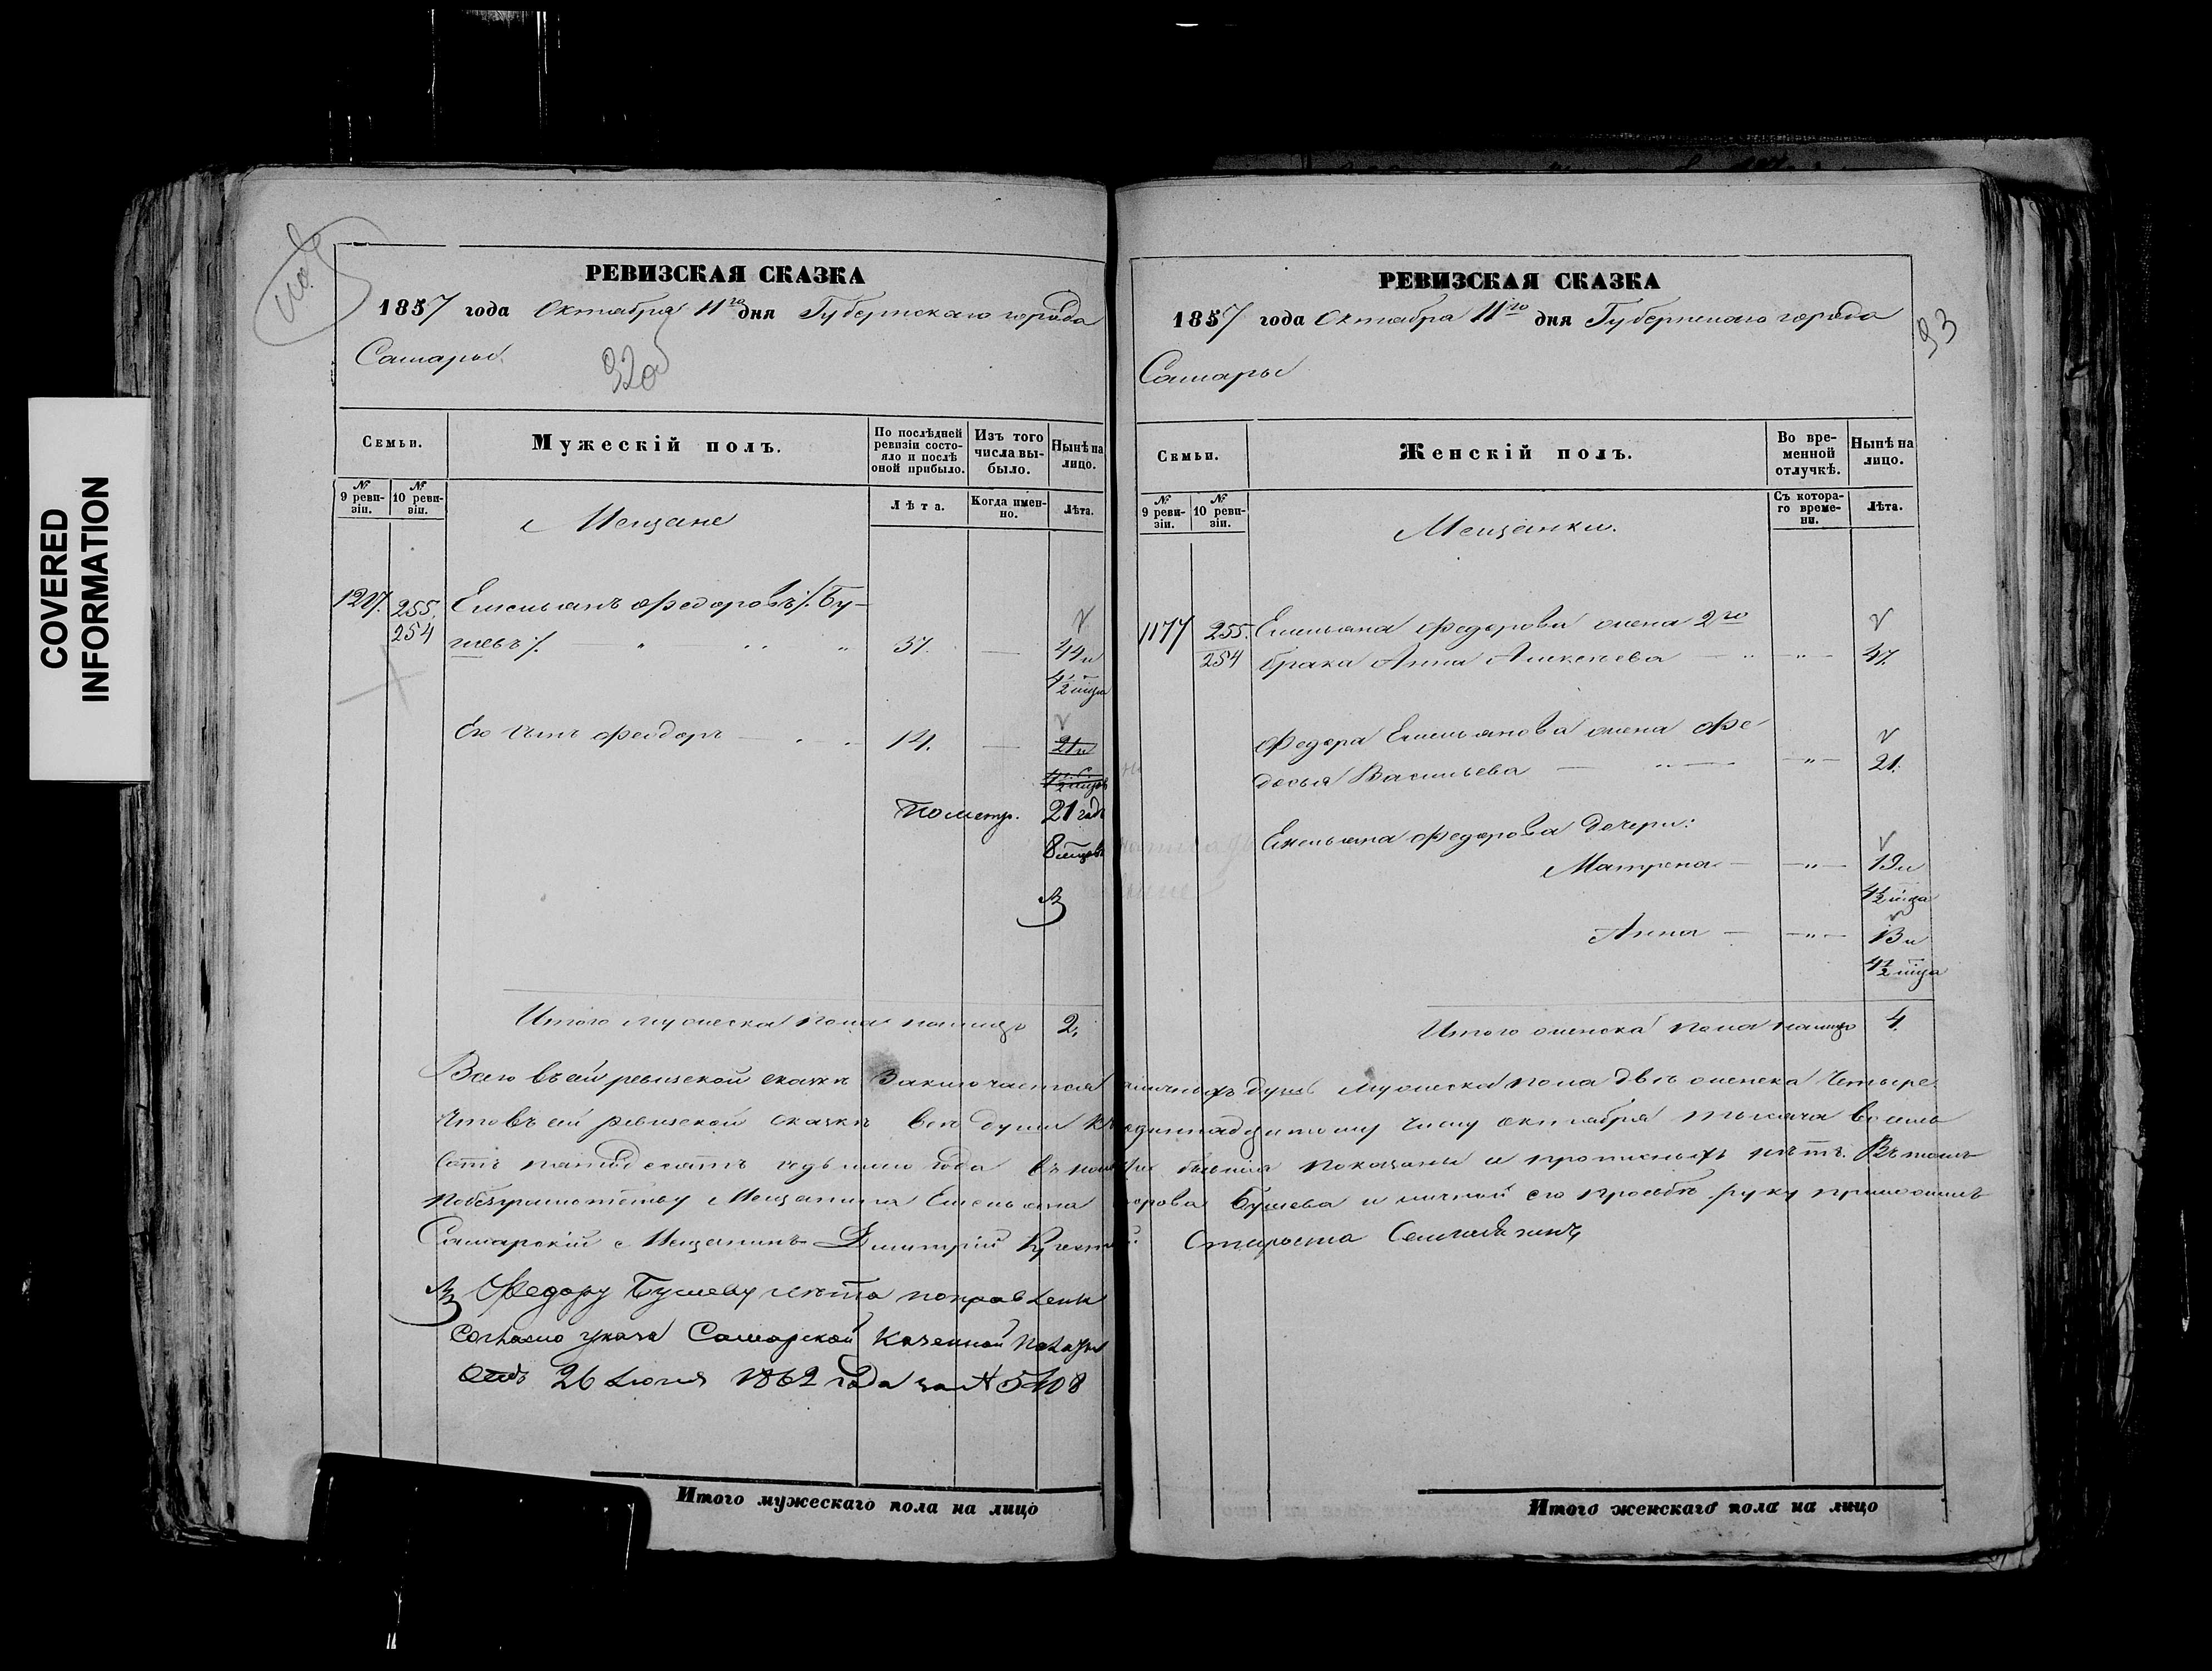 COVERED
INFORMATION
РЕВИЗСКАЯ СКАЗКА
1857 года Октября 11го дня Губернскаго города
Самары
92об
Семьи.
Мужескій полъ.
По послѣдней ревизіи состояло и послѣ оной прибыло.
Изъ того числа выбыло.
Нынѣ на лицо.
№ 9 ревизіи.
№ 10 ревизіи.
Мещане
Лѣта.
Когда именно.
Лѣта.
1207. 255. Емельянъ Федоровъ /: Бу-
254 шевъ :/ 37. — 44 и
4½ мѣца
Его сынъ Феодоръ — 14. — 21 и
4½ мѣцовъ
21 годъ
8 мѣцовъ
Итого мужеска пола налицо 2.
РЕВИЗСКАЯ СКАЗКА
1857 года Октября 11го дня Губернскаго города
93
Самары
Семьи.
Женскій полъ.
Во временной отлучкѣ.
Нынѣ на лицо.
№ 9 ревизіи.
№ 10 ревизіи.
Мещанки.
Съ котораго времени.
Лѣта.
1177 255. Емельяна Федорова жена 2го
254 брака Анна Алексеева — „ — 47.
Федора Емельянова жена Фе-
досья Васильева — „ — 21.
Емельяна Федорова дочери:
Матрена — „ — 19 и
4½ мѣца
Анна — „ — 13 и
4½ мѣца
Итого женска пола налицо 4.
Всего въ сей ревизской сказкѣ заключается наличныхъ душъ мужеска пола двѣ женска четыре.
Что въ сей ревизской сказкѣ все души къ одиннадцатому числу октября тысяча восемь
сотъ пятидесятъ седьмаго года бывшія показаны и прописныхъ нѣтъ. Въ томъ
по безграмотству Мещанина Емельяна Федорова Бушева и личной его просьбѣ руку приложилъ
Самарскій Мещанинъ Дмитрій Староста
Федору Бушеву лѣта поправлены
согласно указа Самарской Казенной Палаты
отъ 26 Июня 1862 года за № 5408
Итого мужескаго пола на лицо
Итого женскаго пола на лицо